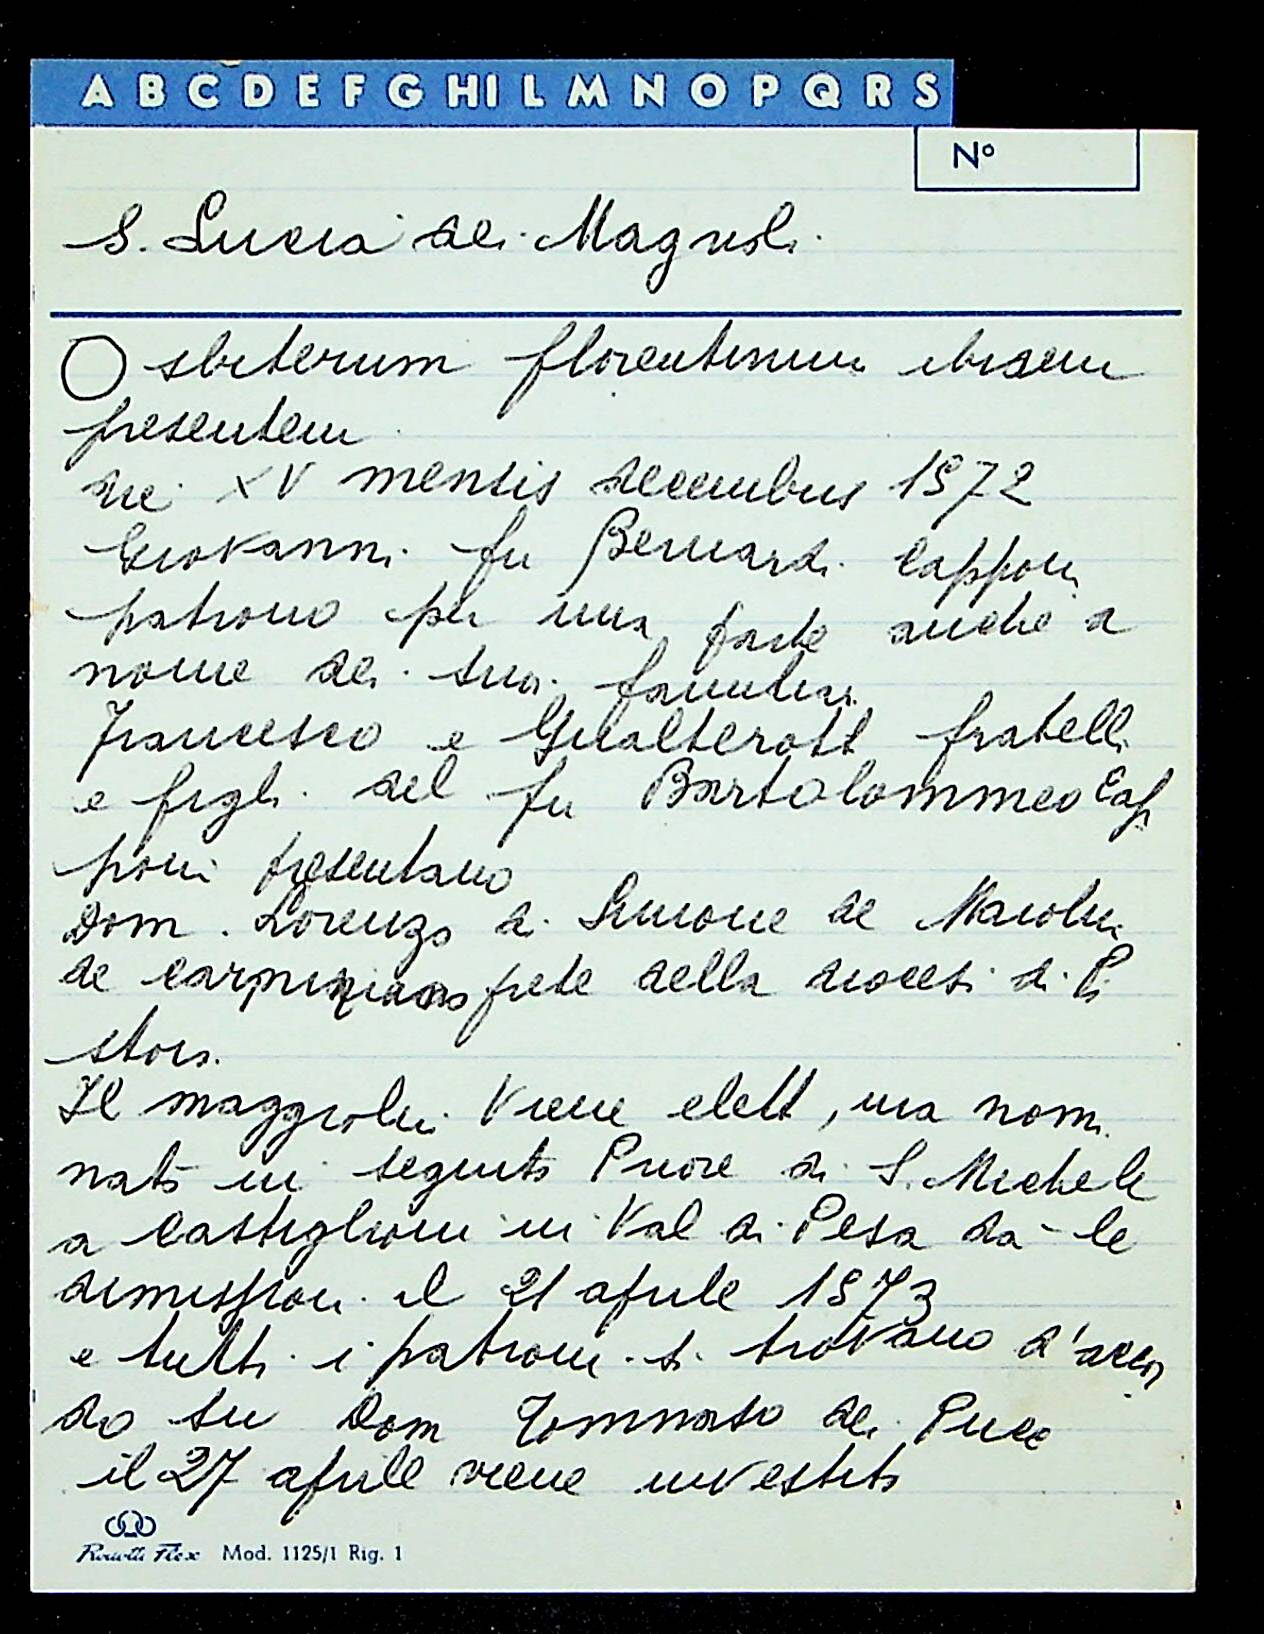 A B C D E F G HI L M N O P Q R S
Nº
S. Lucia dei Magnoli
sbiterum florentinum ibidem
presentem
die XV mensis decembris 1572
Giovanni fu Bernardi Capponi
patrono per una parte anche a
nome dei suoi familiari
Francesco e Gualterotti fratelli
e figli del fu Bartolommeo Cap
poni presentano
Dom. Lorenzo di Simone de
de prete della diocesi di Pi
stoia.
Il viene eletto, ma nomi
nato in seguito Priore di S. Michele
a Castiglioni in Val di Pesa dà le
dimissioni il 21 aprile 1573
e tutti i patroni si trovano d'accor
do su Dom Tommaso de
il 27 aprile viene investito
Mod. 1125/1 Rig. 1